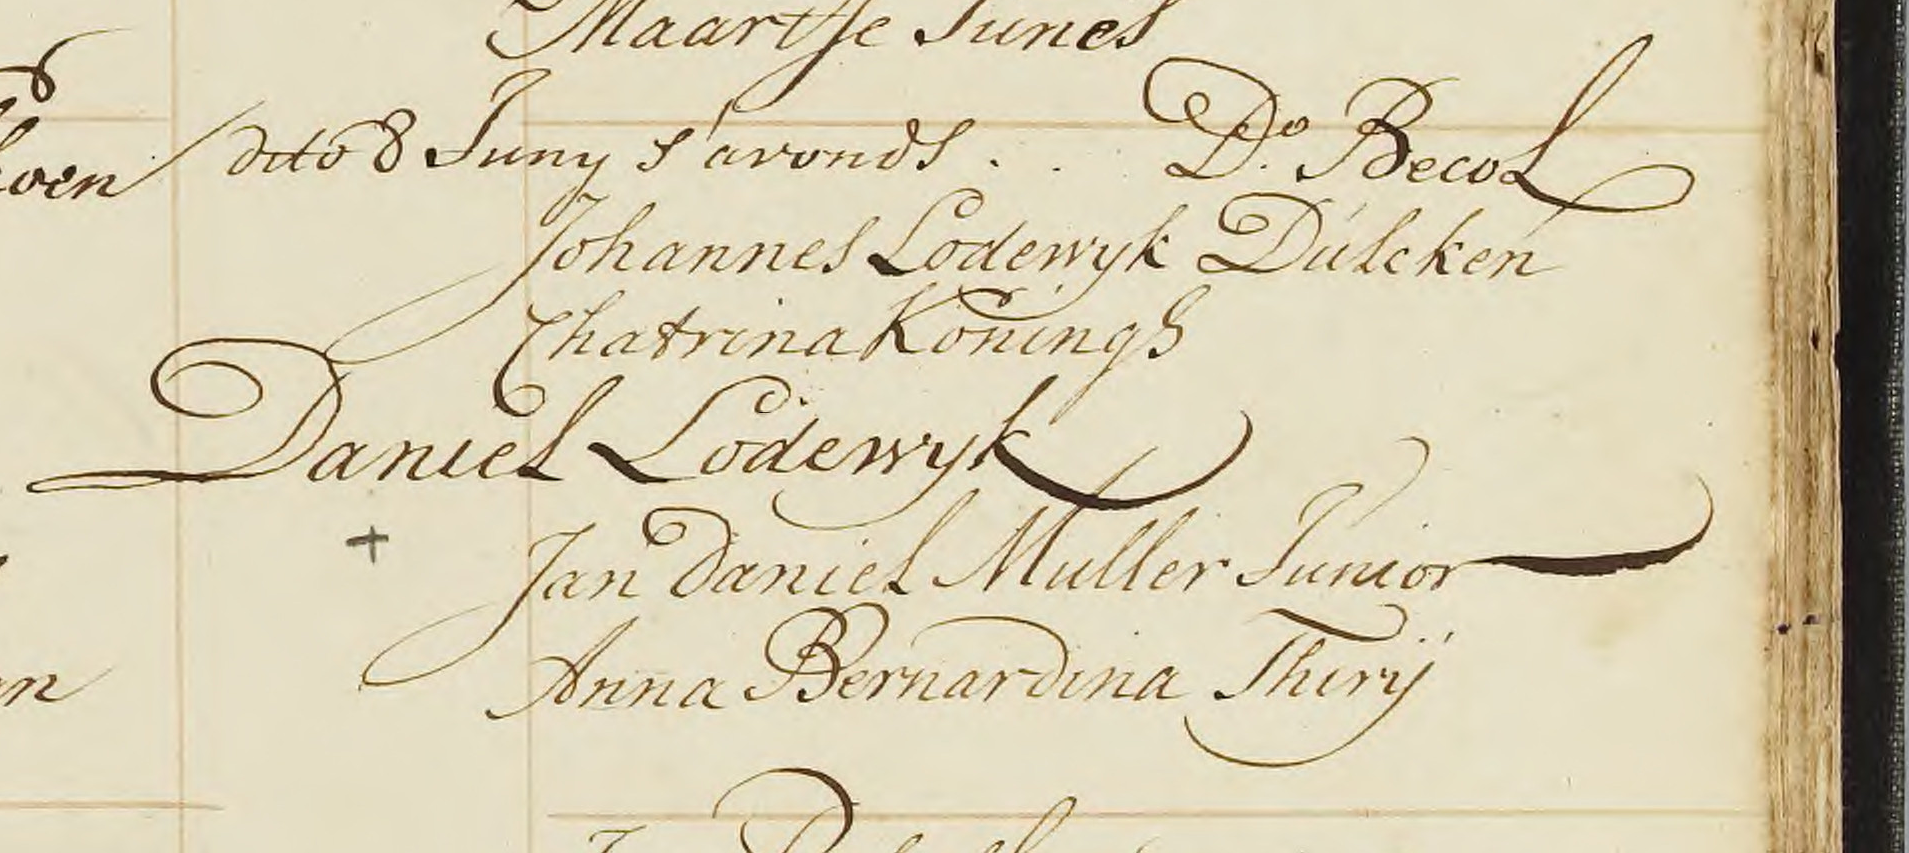 Maartse Junes
dito 8 Juny s'avonds . . Do. Becol
Johannes Lodewyk Dulcken
Chatrina Konings
Daniel Lodewyk
+
Jan Daniel Muller Junior
Anna Bernardina Thirij